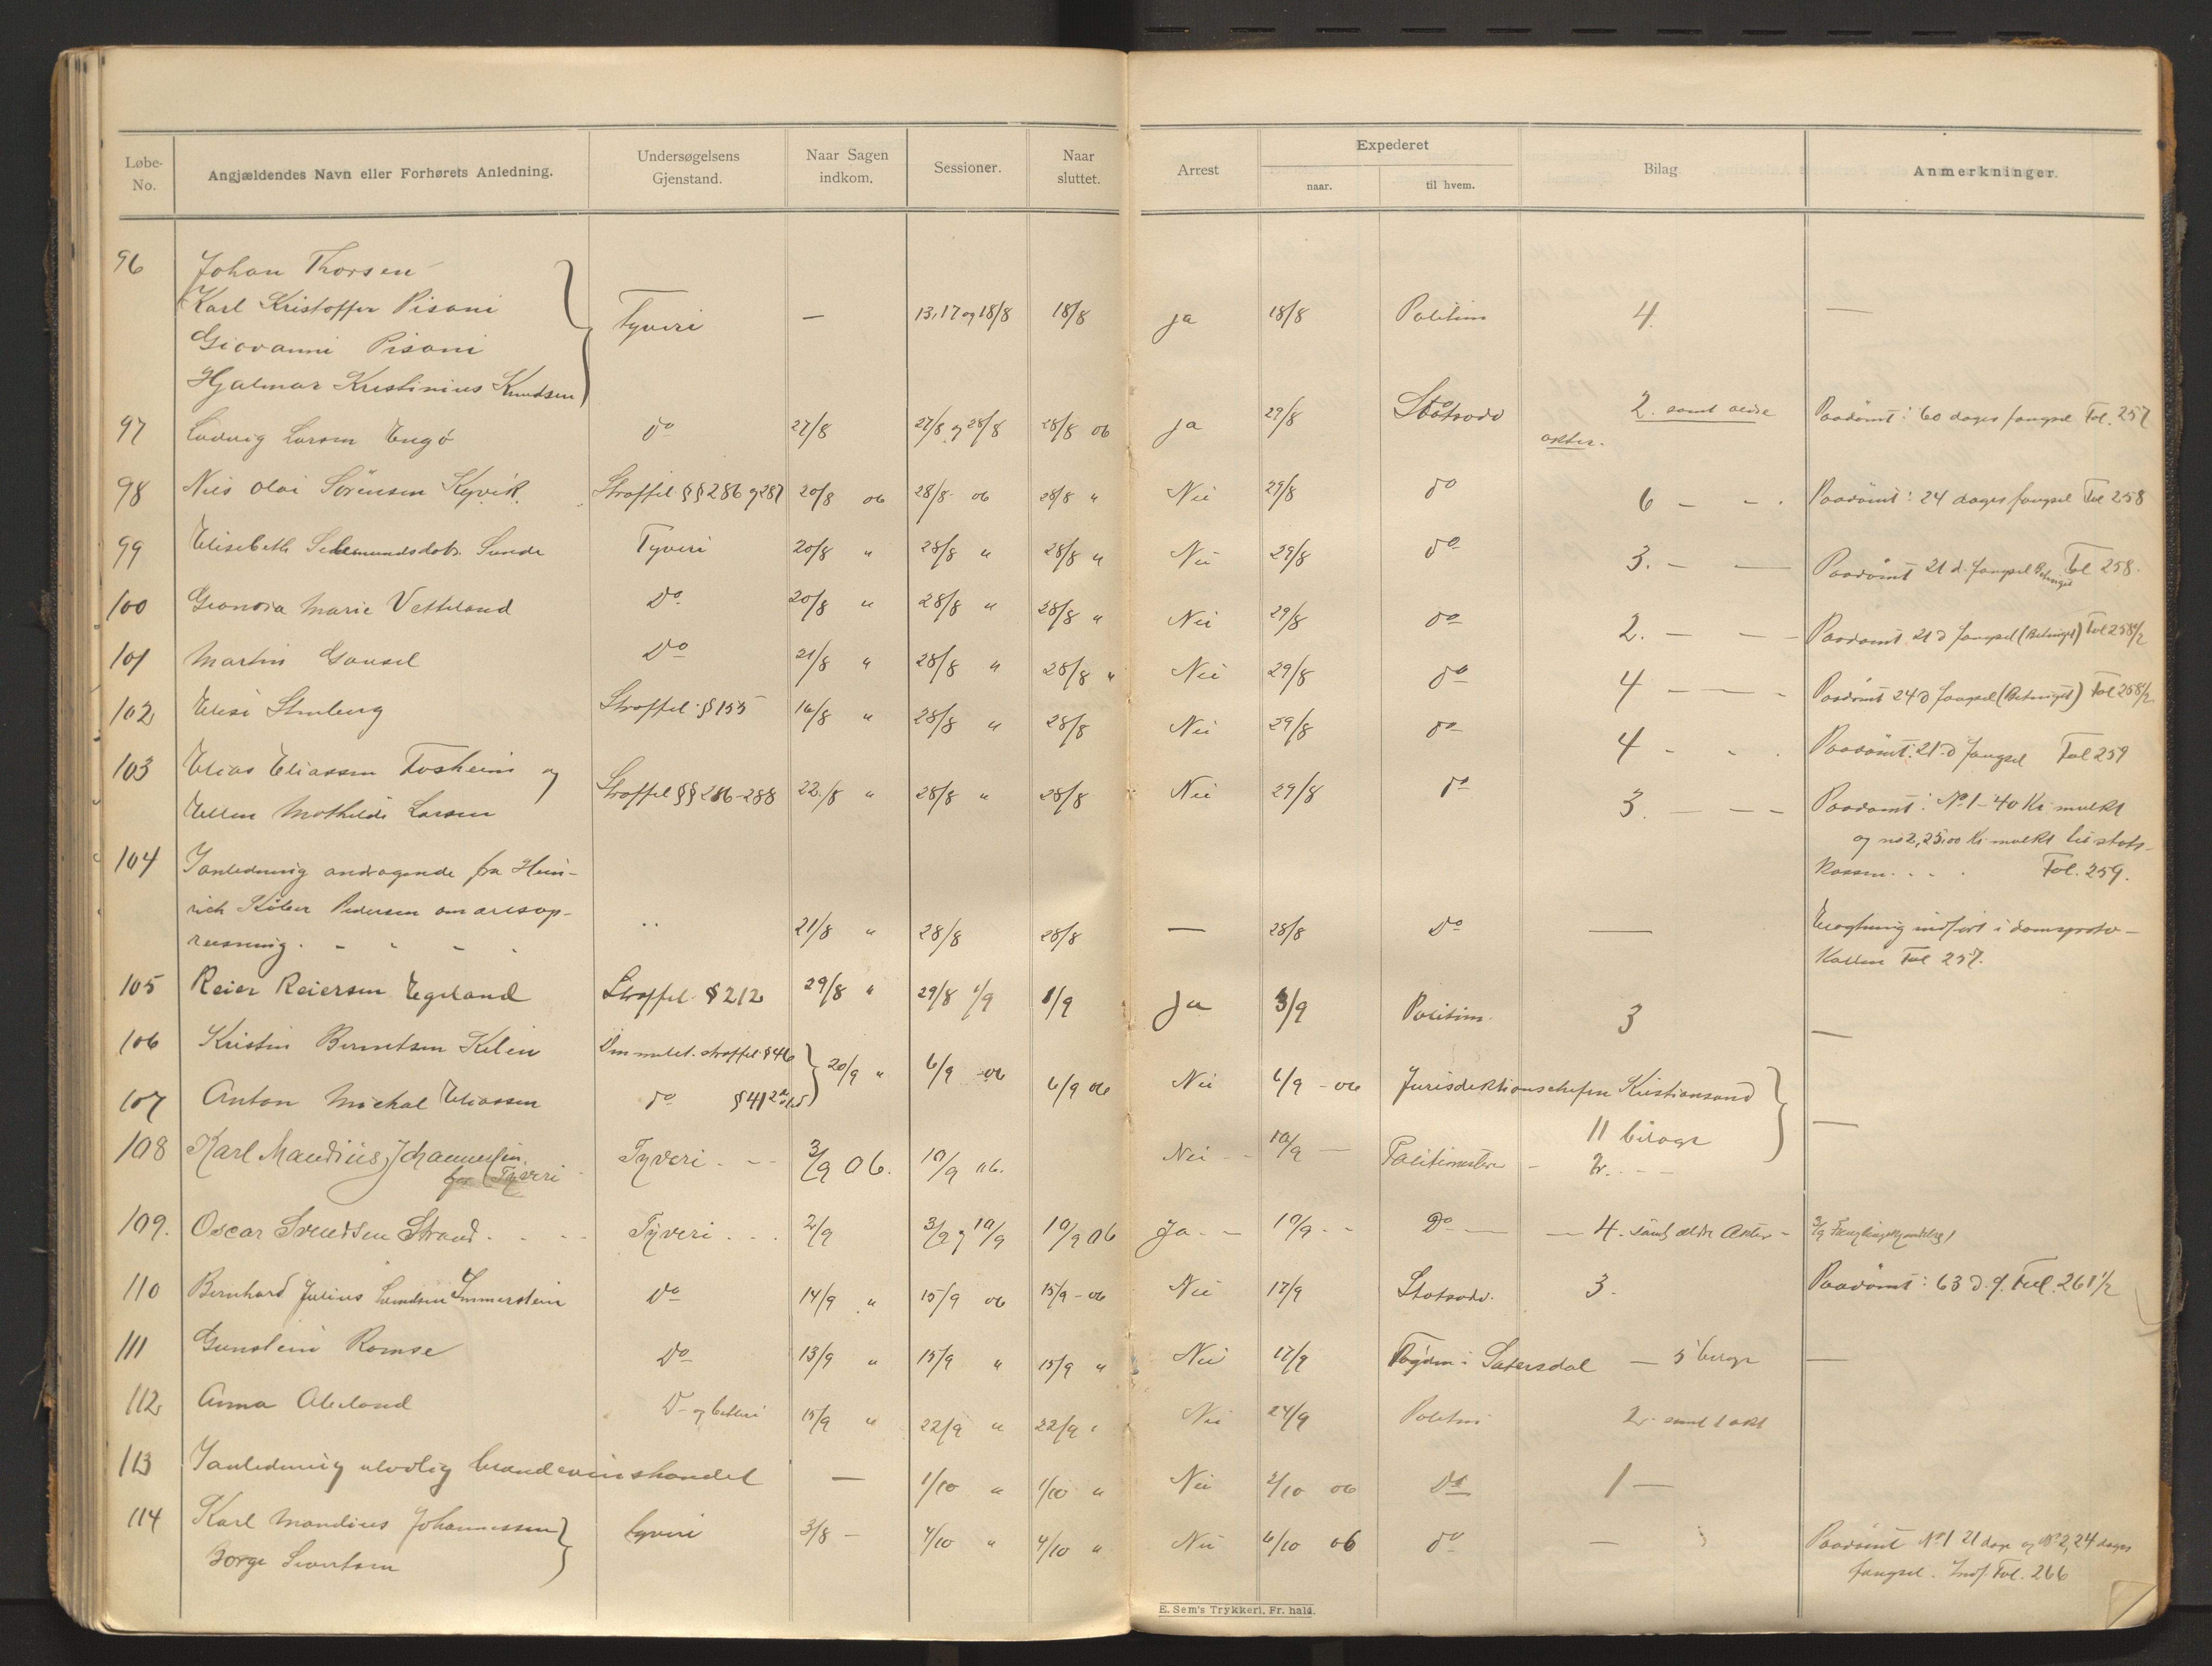 Løbe-No. Angjældendes Navn eller Forhørets Anledning. Undersøgelsens Gjenstand. Naar Sagen indkom. Sessioner. Naar sluttet. Arrest Expederet naar. til hvem. Bilag Anmerkninger.
96 Johan Thorsen
Karl Kristoffer Pisani Tyveri — 13, 17 og 18/8 18/8 ja 18/8 Politim 4. —
Giovanni Pisani
Hjalmar Kristinius Knudsen
97 Ludvig Larsen Engö do 27/8 27/8 og 28/8 28/8 06 ja 29/8 Statsadv 2. samt ældre Paadömt: 60 dages fængsel Fol. 257
akter.
98 Nils Olai Sörensen Kyvik. Straffel. §§ 286 og 287 20/8 06 28/8 06 28/8 " Nei 29/8 do 6 — — . Paadömt: 24 dages fængsel Fol 258
99 Elisebeth Sunde Tyveri 20/8 " 28/8 " 28/8 " Nei 29/8 do 3. — — Paadömt 21 d. fængsel Betinget Fol 258.
100 Marie Vetteland Do. 20/8 " 28/8 " 28/8 " Nei 29/8 do 2. — — — Paadömt 21 d fængsel (Betinget) Fol 258 1/2
101 Martin Gausel Do 21/8 " 28/8 " 28/8 " Nei 29/8 do 4 — — - Paadömt 24 d fængsel (Betinget) Fol 258 1/2
102 Elise Straffel. § 155 16/8 " 28/8 " 28/8 Nei 29/8 do 4 - - . Paadömt: 21 d fængsel Fol 259
103 Elias Eliassen Fosheim og
Ellen Mathilde Larsen Straffel §§ 286-288 22/8 " 28/8 " 28/8 Nei 29/8 do 3. — — — Paadömt: No 1 - 40 Kr mulkt
og no 2, 25,00 Kr. mulkt til stats-
kassen. . . . Fol. 259.
104 I anledning andragende fra Hein-
rich Pedersen om æresop-
reisning. - - - . . . 21/8 " 28/8 28/8 — 28/8 Do — indfört i domsproto-
kollen Fol 257.
105 Reier Reiersen Egeland Straffel. § 212 29/8 " 29/8 1/9 1/9 Ja 3/9 Politim. 3 —
106 Kristin Berntsen Kilen Den milit. straffel. § 46 20/9 " 6/9 -06 6/9 06 Nei 6/9 - 06 Jurisdiktionschefen Kristiansand —
107 Anton Michal Eliassen do § 41
11 bilage
108 Karl Mandius Johannessen. Tyveri . - - 3/9 06. 10/9 06. Nei - - 10/9 — Politimester - 2. - - -
for Tyveri
109. Oscar Svendsen Strand. . . . Tyveri . . . 2/9 3/9 og 10/9 10/9 06 Ja. - - 10/9 - - Do — — 4. samt ældre Akter -
110 Bernhard Julius Svendsen Immerstein Do 14/9 " 15/9 06 15/9 - 06 Nei 17/9 Statsadv. 3. Paadömt: 63 d. f. Fol. 261 1/2
111 Gunstein Romse Do 13/9 " 15/9 " 15/9 " Nei 17/9 Fogden i Sætersdal — 5 bilage —
112. Anna Abeland D- og betleri 15/9 " 22/9 " 22/9 " Nei 24/9 Politim 2. samt 1 akt
113 I anledning ulovlig brændevinshandel — 1/10 " 1/10 " Nei 2/10 06 Do 1 —
114 Karl Mandius Johannessen tyveri 3/8 — 4/10 " 4/10 " Nei 6/10 06 do — Paadömt No 1 21 dage og No 2, 24 dages
Borge Sivertsen fængsel. Indf. Fol. 266
E. Sem's Trykkeri, Fr. hald.